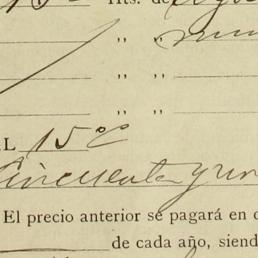 15 Hts. de
" "
" "
" "
L 15 00
Cincuenta y un
El precio anterior se pagará en
de cada año, siend